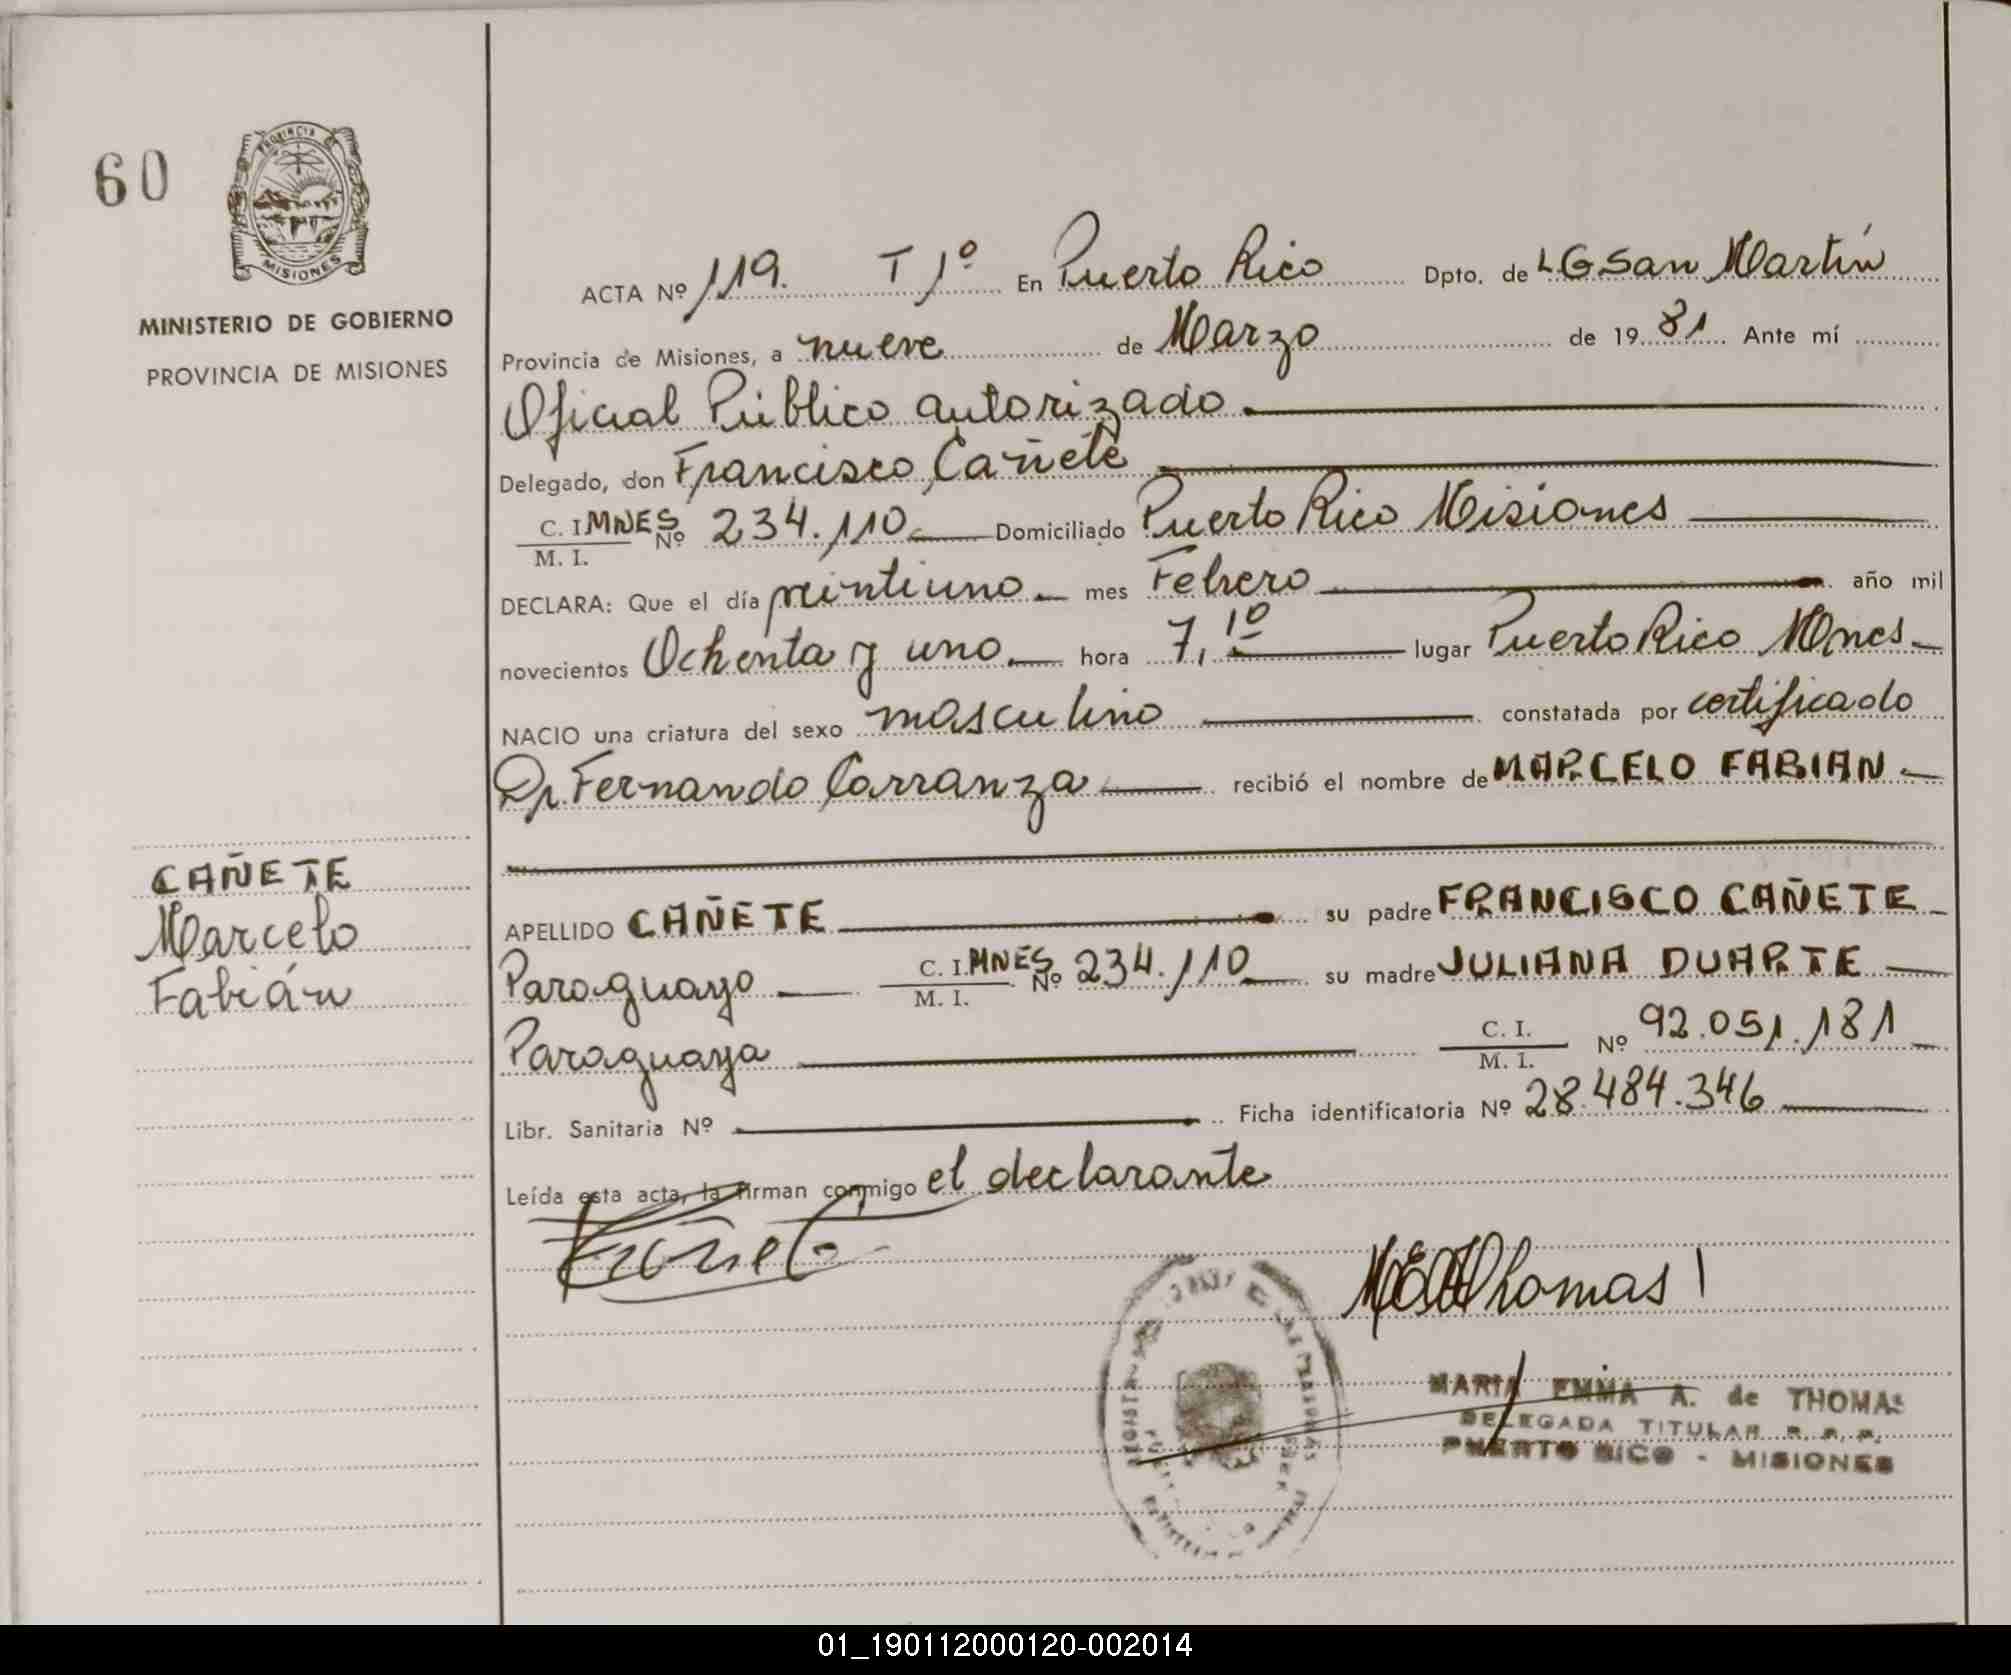 60
PROVINCIA DE
MISIONES
MINISTERIO DE GOBIERNO
PROVINCIA DE MISIONES
ACTA Nº 119. T 1º En Puerto Rico Dpto. de LGSan Martín
Provincia de Misiones, a nueve de Marzo de 1981 Ante mí
Oficial Público autorizado
Delegado, don Francisco Cañete
C. I. MNES Nº 234.110 Domiciliado Puerto Rico Misiones
M. I.
DECLARA: Que el día veintiuno mes Febrero año mil
novecientos Ochenta y uno hora 7,10 lugar Puerto Rico Mnes
NACIO una criatura del sexo masculino constatada por certificado
Dr. Fernando Carranza recibió el nombre de MARCELO FABIAN
CAÑETE
Marcelo
Fabián
APELLIDO CAÑETE su padre FRANCISCO CAÑETE
Paraguayo C. I. MNES Nº 234.110 su madre JULIANA DUARTE
M. I.
Paraguaya C. I. Nº 92.051.181
M. I.
Libr. Sanitaria Nº Ficha identificatoria Nº 28.484.346
Leída esta acta, la firman conmigo el declarante
Thomas
MARIA EMMA A. de THOMAS
DELEGADA TITULAR R. P. P.
PUERTO RICO - MISIONES
01_190112000120-002014